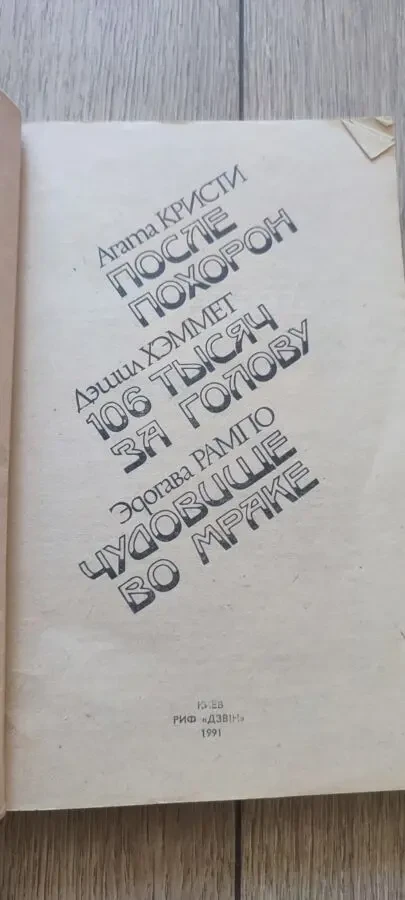 Агата КРИСТИ
ПОСЛЕ
ПОХОРОН
Дэшил ХЭММЕТ
106 ТЫСЯЧ
ЗА ГОЛОВУ
Эдогава РАМПО
ЧУДОВИЩЕ
ВО МРАКЕ
КИЕВ
РИФ «ДЗВІН»
1991